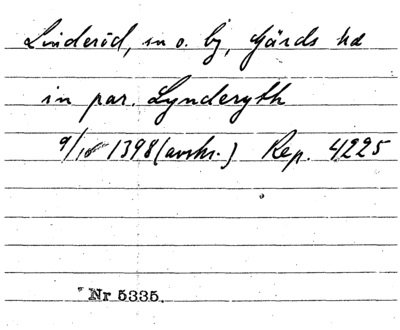 Linderöd, sn o. by, Gärds hd
in par. Lynderyth
9/10 1398 (avskr.) Rep. 4225
Nr 5335.